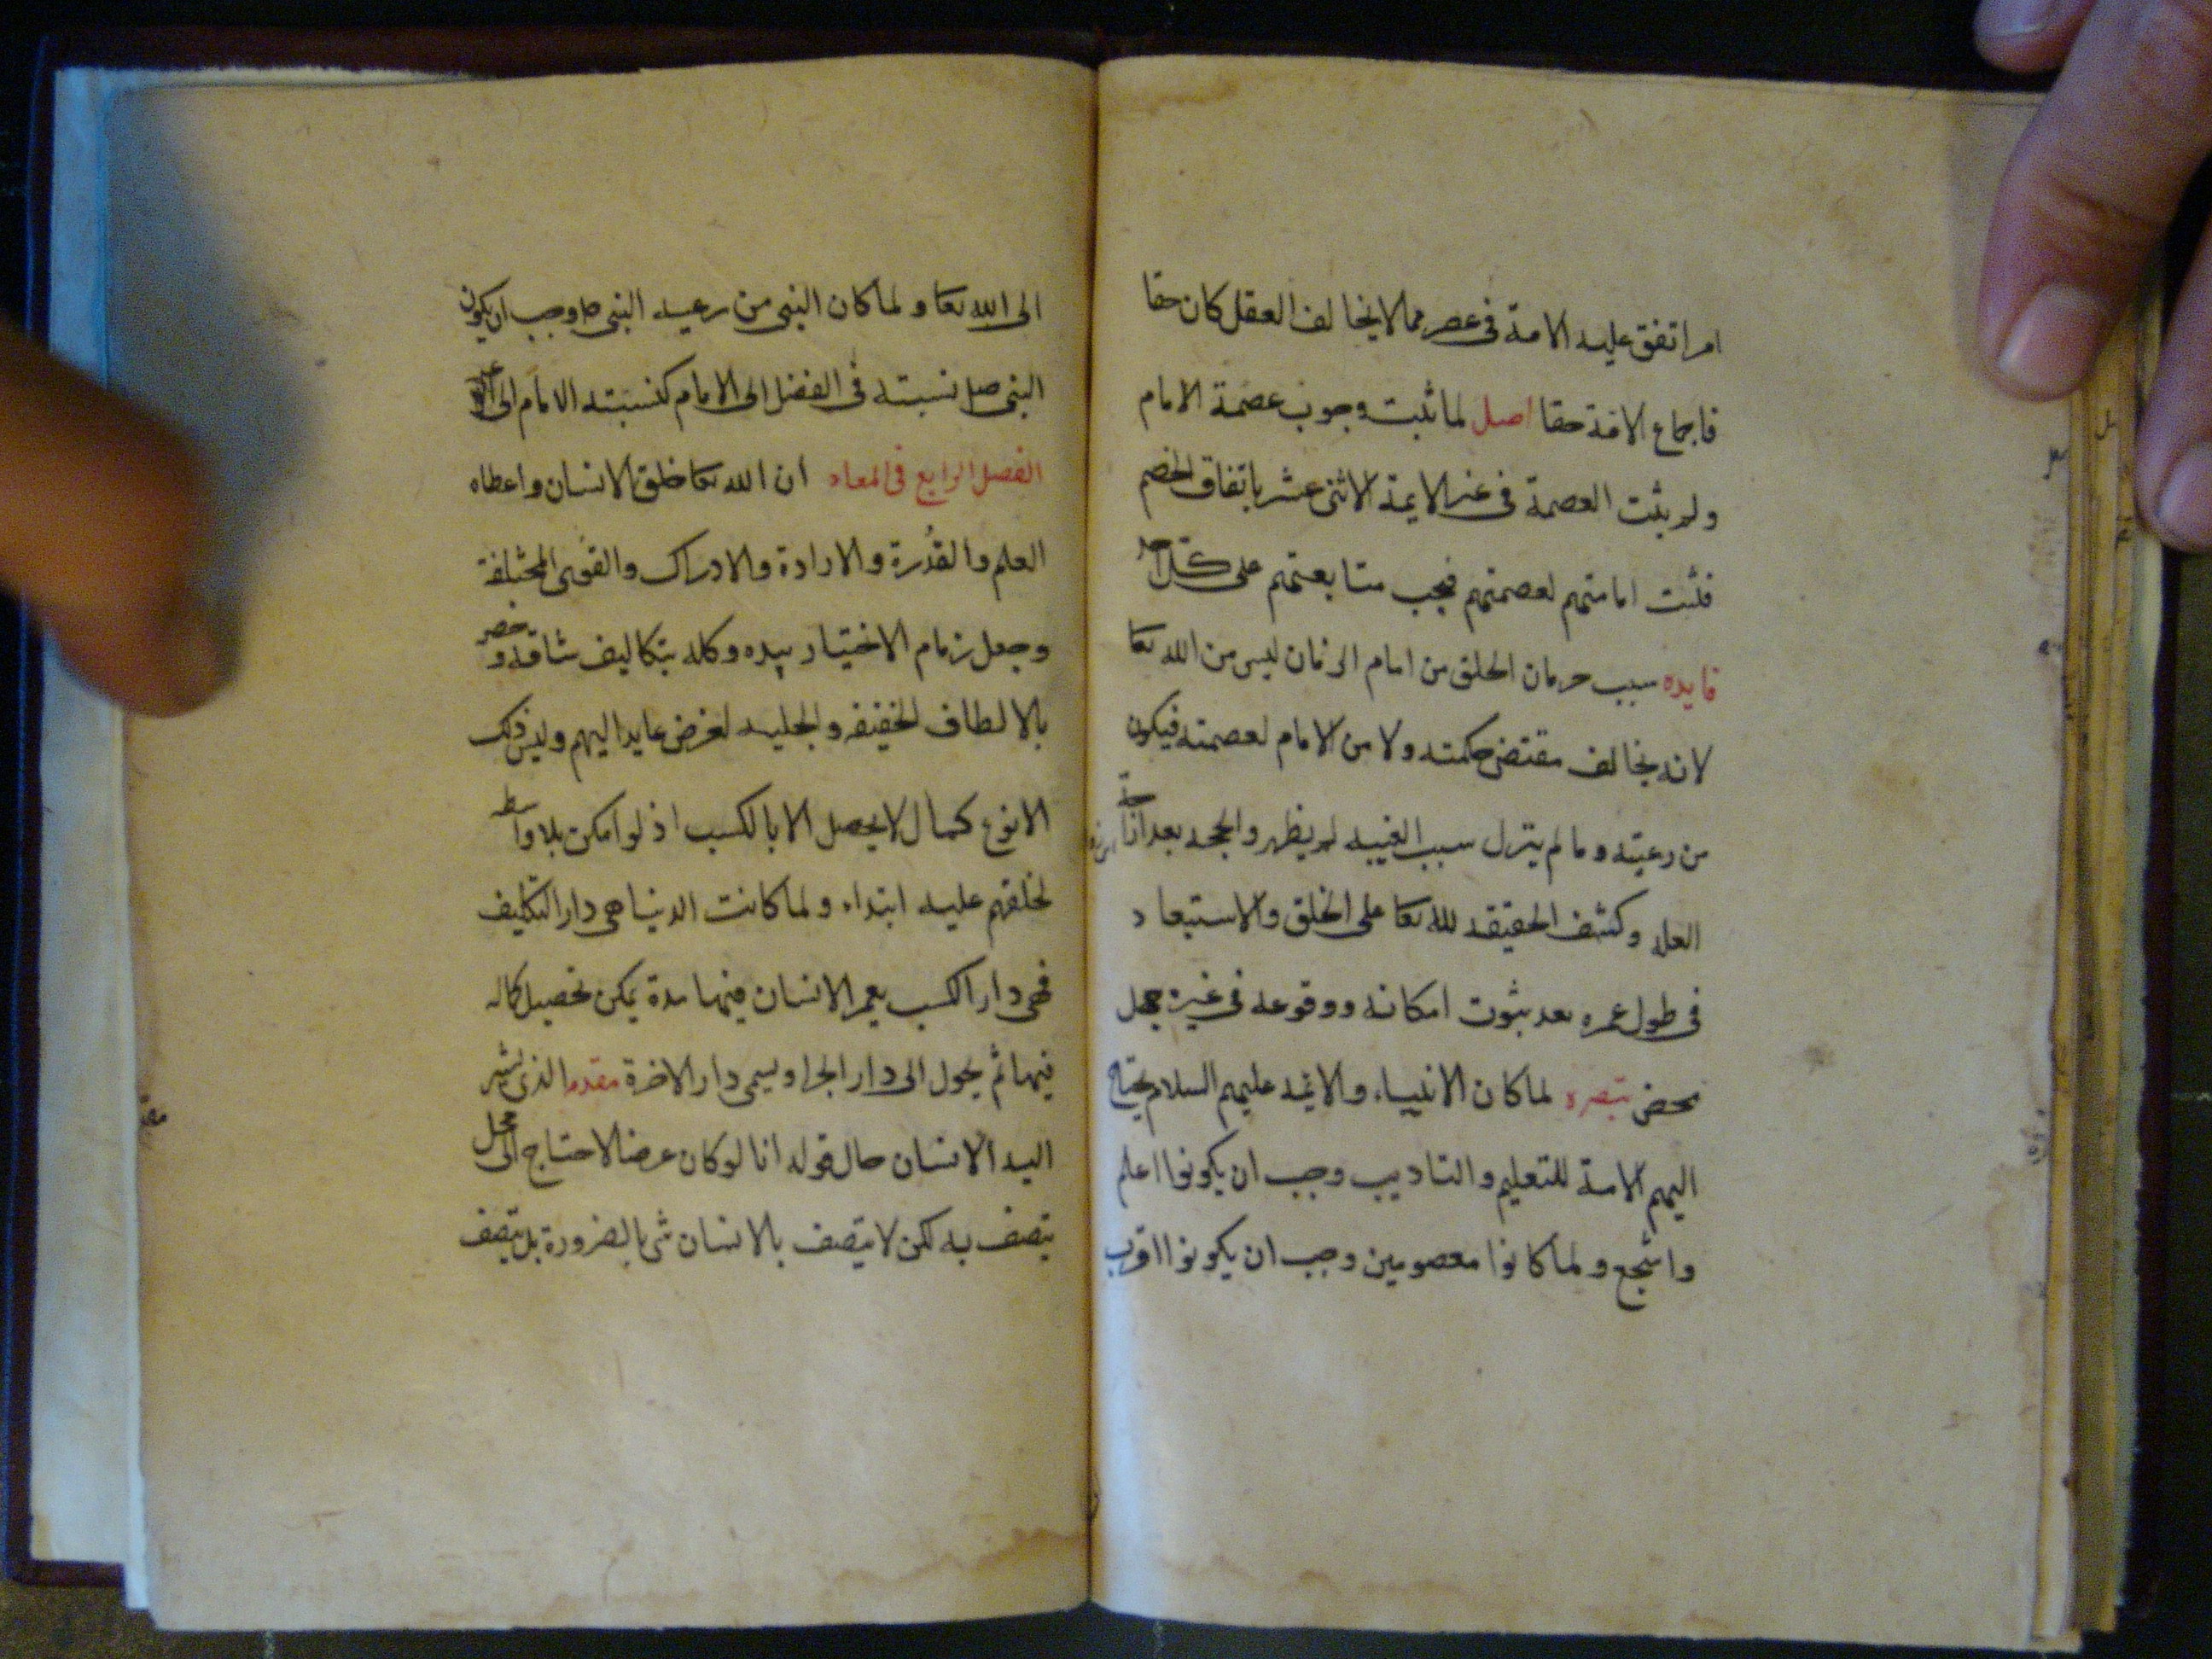 امر اتفق عليه الامة فى عصر مما لا يخالف العقل كان حقا
فاجماع الامة حقا اصل لما ثبت وجوب عصمة الامام
ولم يثبت العصمة فى غير الايمة الاثنى عشر باتفاق الخصم
فثبت امامتهم لعصمتهم فيجب متابعتهم على كل احد
فايده سبب حرمان الخلق من امام الزمان ليس من الله تعا
لانه يخالف مقتضى حكمته ولا من الامام لعصمته فيكون
من رعيته وما لم يزل سبب الغيبه لم يظهر والحجه بعد ازاحة
العله وكشف الحقيقه لله تعا على الخلق والاستبعاد
فى طول عمره بعد ثبوت امكانه ووقوعه فى غيره جهل
محض تبصره لما كان الانبياء والايمه عليهم السلام يحتاج
اليهم الامة للتعليم والتاديب وجب ان يكونوا اعلم
واشجع ولما كانوا معصومين وجب ان يكونوا اقرب
الى الله تعا ولما كان النبى من رعيه النبى ص وجب ان يكون
النبى صل نسبته فى الفضل الى الامام كنسبته الامام الى
الفصل الرابع فى المعاد ان الله تعا خلق الانسان واعطاه
العلم والقدرة والارادة والادراك والقوى المختلفة
وجعل زمام الاختيار بيده وكلفه بتكاليف شاقه وخصه
بالالطاف الخفيفه والجليه لغرض عايدا اليهم وليس ذلك
الا نوع كمال لا يحصل الا بالكسب اذ لو امكن بلا واسطه
لخلقهم عليه ابتداء ولما كانت الدنيا هى دار التكليف
فهى دار الكسب يعمر الانسان فيها مدة يمكن تحصيل كماله
فيها ثم يحول الى دار الجزا ويسمى دار الاخرة مقدمه الذى يشير
اليه الانسان حال قوله انا لو كان عرضا لاحتاج الى محل
يتصف به لكن لا يتصف بالانسان شى بالضرورة بل يتصف